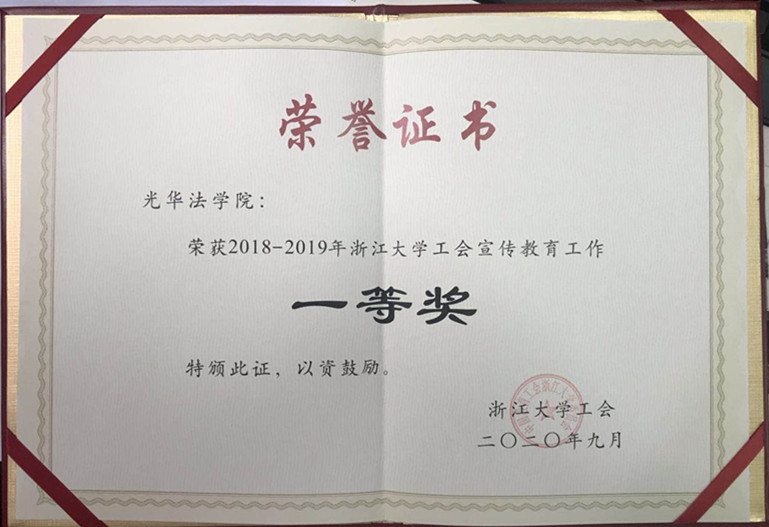 荣誉证书
光华法学院：
荣获2018-2019年浙江大学工会宣传教育工作
一等奖
特颁此证，以资鼓励。
浙江大学工会
二〇二〇年九月